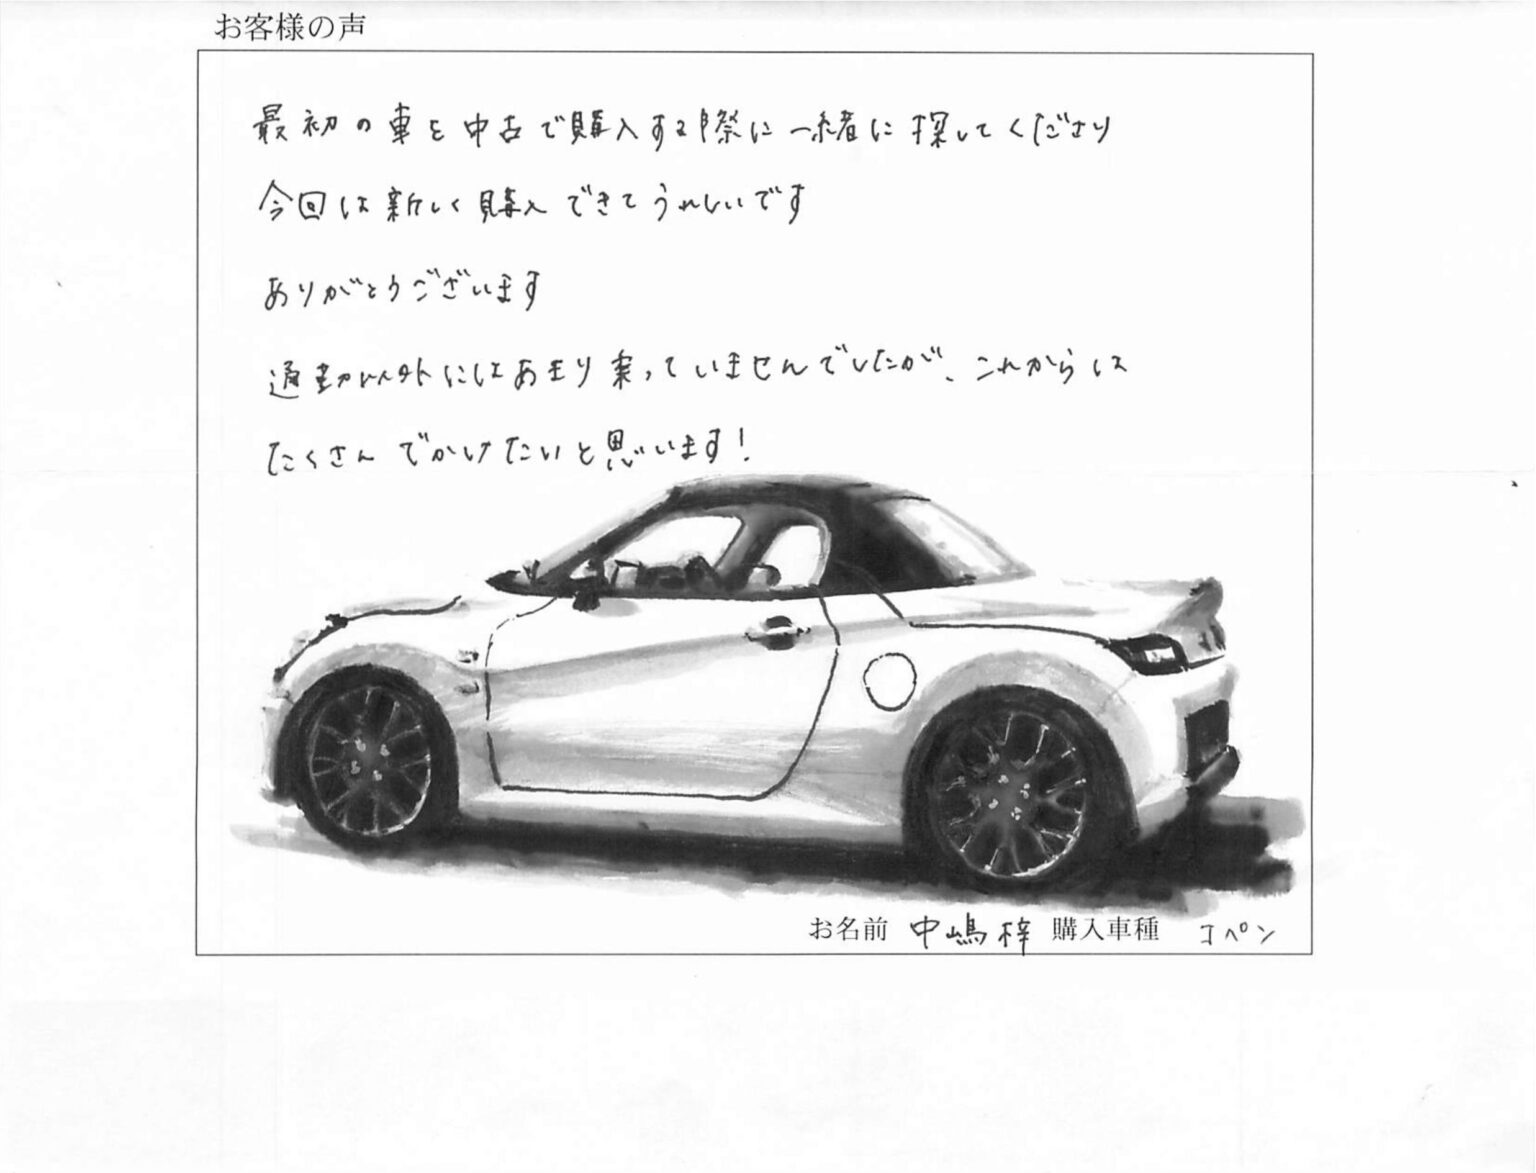 お客様の声
最初の車を中古で購入する際に一緒に探してくださり
今回は新しく購入できてうれしいです
ありがとうございます
通勤以外にはあまり乗っていませんでしたが、これからは
たくさんでかけたいと思います!
お名前 中嶋梓 購入車種 コペン